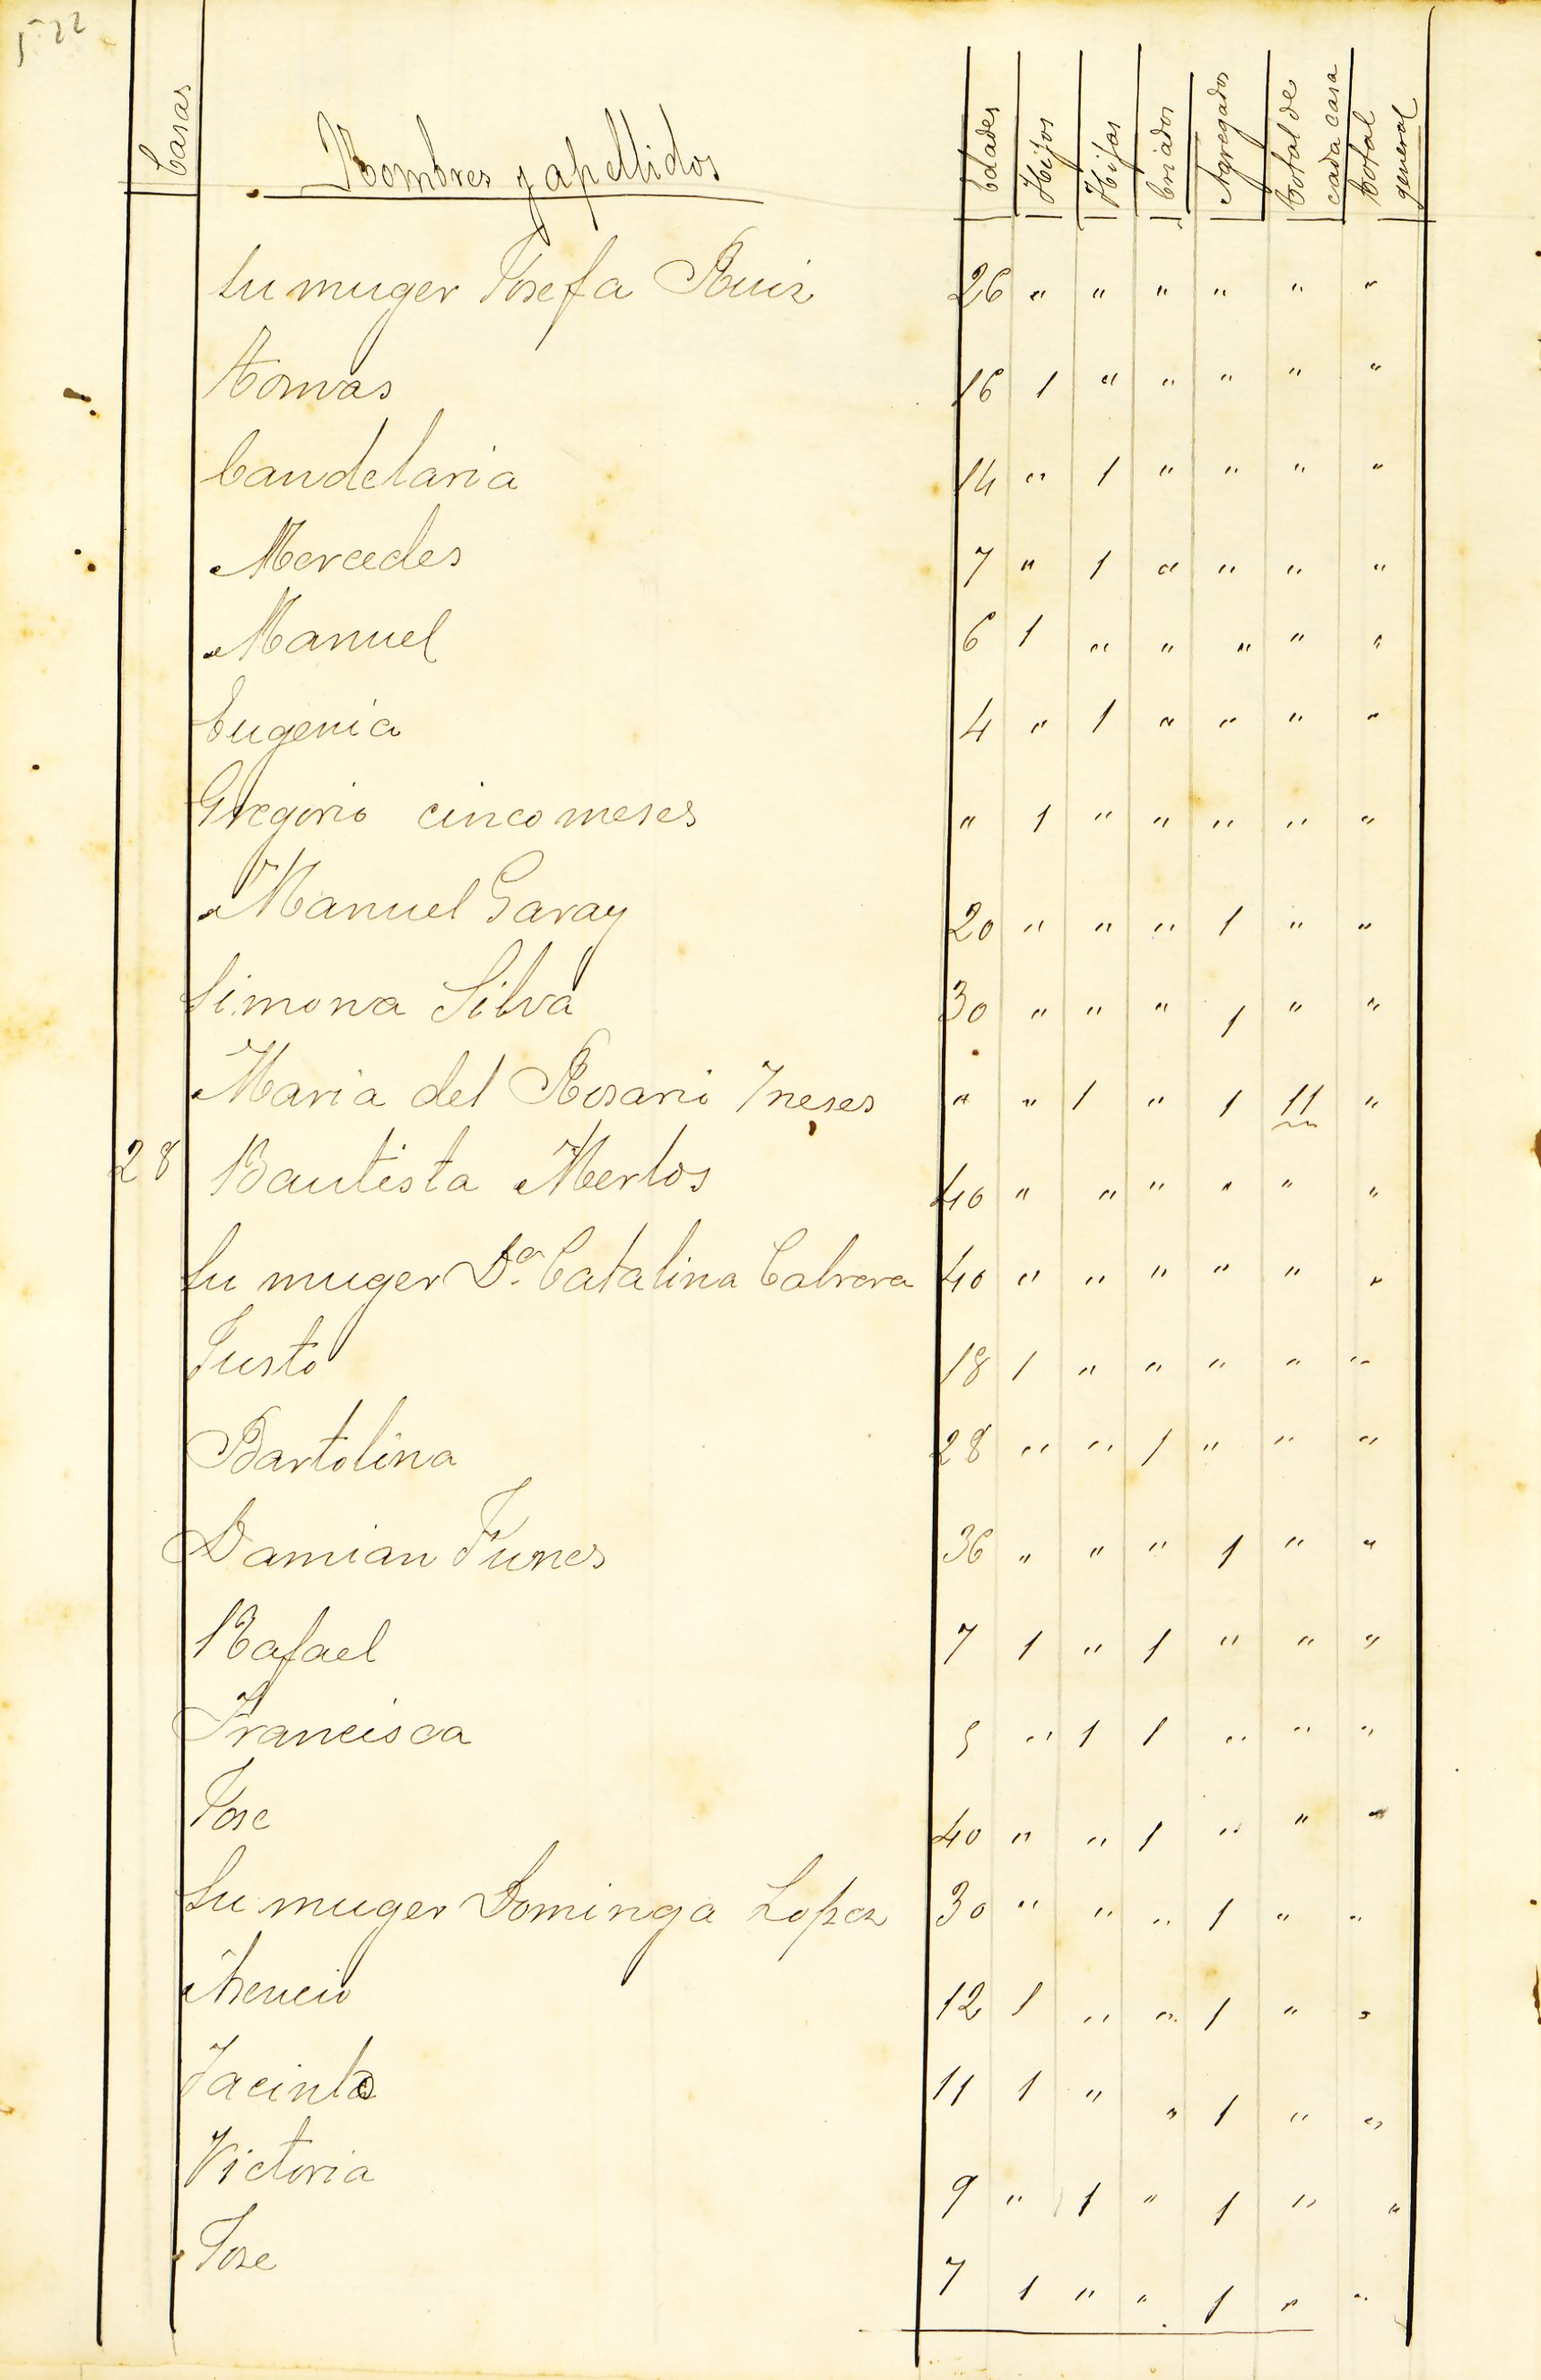 522
Casas Nombres y apellidos Edades Hijos Hijas Criados Agregados Total de cada casa Total general
Su muger Josefa Ruiz 26 " " " " " "
Tomas 16 1 " " " " "
Candelaria 14 " 1 " " " "
Mercedes 7 " 1 " " " "
Manuel 6 1 " " " " "
Eugenia 4 " 1 " " " "
Gregorio cinco meses " 1 " " " " "
Manuel Garay 20 " " " 1 " "
Simona Silva 30 " " " 1 " "
Maria del Rosario 7 neses " " 1 " 1 11 "
28 Bautista Merlos 40 " " " " " "
Su muger Da. Catalina Cabrera 40 " " " " " "
Justo 18 1 " " " " "
Bartolina 28 " " 1 " " "
Damian Funes 36 " " " 1 " "
Rafael 7 1 " 1 " " "
Francisca 5 " 1 1 " " "
Jose 40 " " 1 " " "
Su muger Dominga Lopez 30 " " " 1 " "
12 1 " " 1 " "
Jacinto 11 1 " " 1 " "
Victoria 9 " 1 " 1 " "
Jose 7 1 " " 1 " "